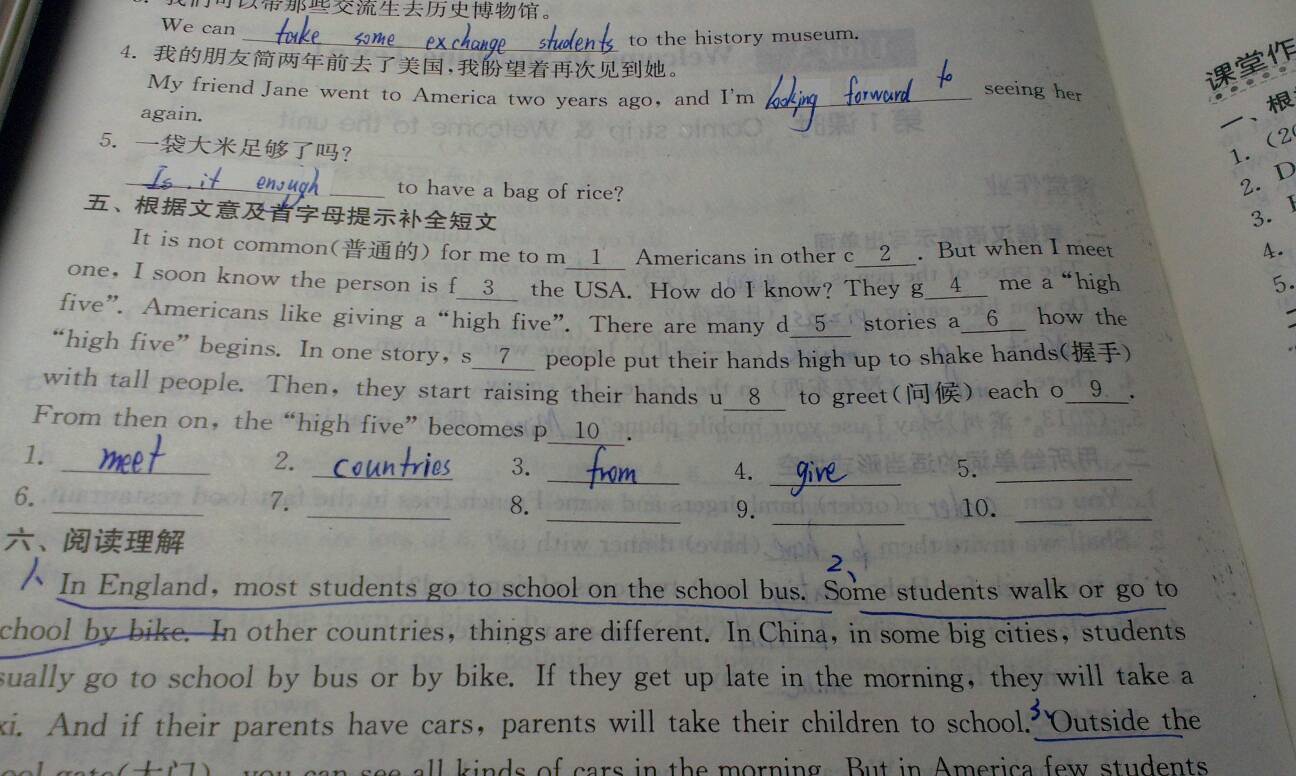 我们可以带那些交流生去历史博物馆。
We can take some exchange students to the history museum.
4. 我的朋友简两年前去了美国,我盼望着再次见到她。
My friend Jane went to America two years ago, and I'm looking forward to seeing her
again.
5. 一袋大米足够了吗?
Is it enough to have a bag of rice?
五、根据文意及首字母提示补全短文
It is not common(普通的) for me to m 1 Americans in other c 2 . But when I meet
one, I soon know the person is f 3 the USA. How do I know? They g 4 me a “high
five”. Americans like giving a “high five”. There are many d 5 stories a 6 how the
“high five” begins. In one story, s 7 people put their hands high up to shake hands(握手)
with tall people. Then, they start raising their hands u 8 to greet(问候) each o 9 .
From then on, the “high five” becomes p 10 .
1. meet 2. countries 3. from 4. give 5.
6. 7. 8. 9. 10.
六、阅读理解
1、In England, most students go to school on the school bus. 2、Some students walk or go to
chool by bike. In other countries, things are different. In China, in some big cities, students
sually go to school by bus or by bike. If they get up late in the morning, they will take a
xi. And if their parents have cars, parents will take their children to school. 3、Outside the
ool gate(大门), you can see all kinds of cars in the morning. But in America few students
课堂作
一、根
1. (20
2. D
3.
4.
5.